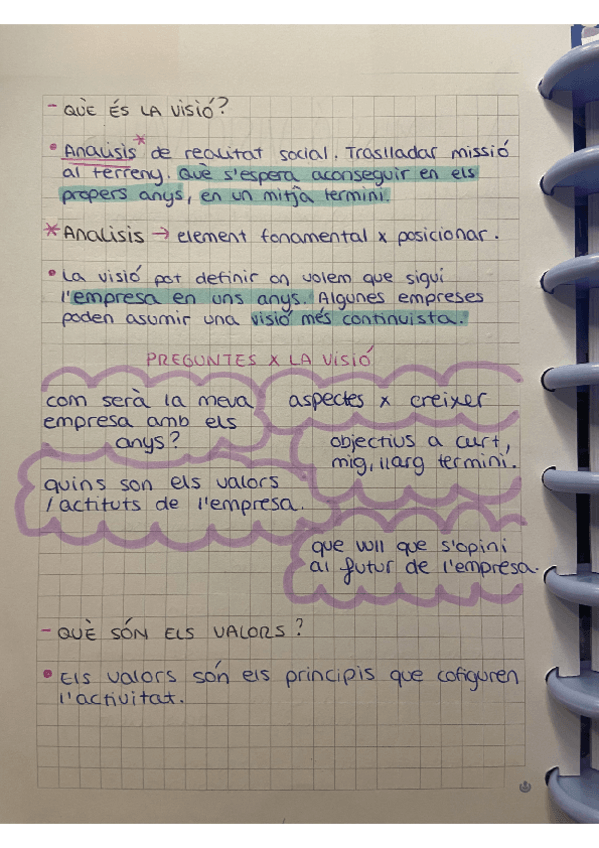 - QUÈ ÉS LA VISIÓ?
• Analisis* de realitat social. Traslladar missió
al terreny. Què s'espera aconseguir en els
propers anys, en un mitjà termini.
*Analisis → element fonamental x posicionar.
• La visió pot definir on volem que sigui
l'empresa en uns anys. Algunes empreses
poden asumir una visió més continuista.
PREGUNTES X LA VISIÓ
com serà la meva
empresa amb els
anys?
aspectes x creixer
objectius a curt,
mig, llarg termini.
quins son els valors
/ actituts de l'empresa.
que vull que s'opini
al futur de l'empresa.
- QUÈ SÓN ELS VALORS?
• Els valors són els principis que cofiguren
l'activitat.